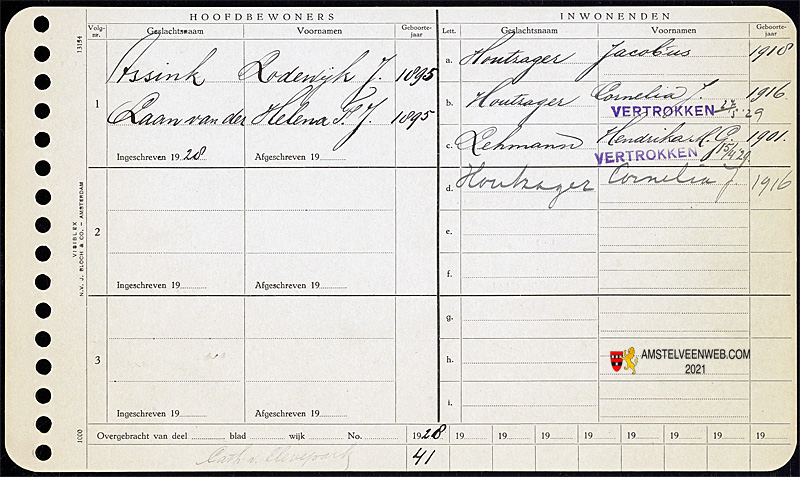 HOOFDBEWONERS
INWONENDEN
Volg-nr.
Geslachtsnaam
Voornamen
Geboorte-jaar
Lett.
Geslachtsnaam
Voornamen
Geboorte-jaar
1
Assink Lodewijk J. 1895
Laan van der Helena F. J. 1895
Ingeschreven 19.28 Afgeschreven 19
2
Ingeschreven 19 Afgeschreven 19
3
Ingeschreven 19 Afgeschreven 19
a. Houtzager Jacobus 1918
b. Houtzager Cornelia J. 1916
VERTROKKEN 27/5 '29
c. Lehmann Hendrika M. G. 1901.
VERTROKKEN 15/4 '29.
d. Houtzager Cornelia J 1916
e.
f.
g.
h.
i.
AMSTELVEENWEB.COM
2021
Overgebracht van deel blad wijk No. 1928 19 19 19 19 19 19 19 19
41
13154
VISIBLEX
N.V. J. BLOCH & CO. - AMSTERDAM
1000